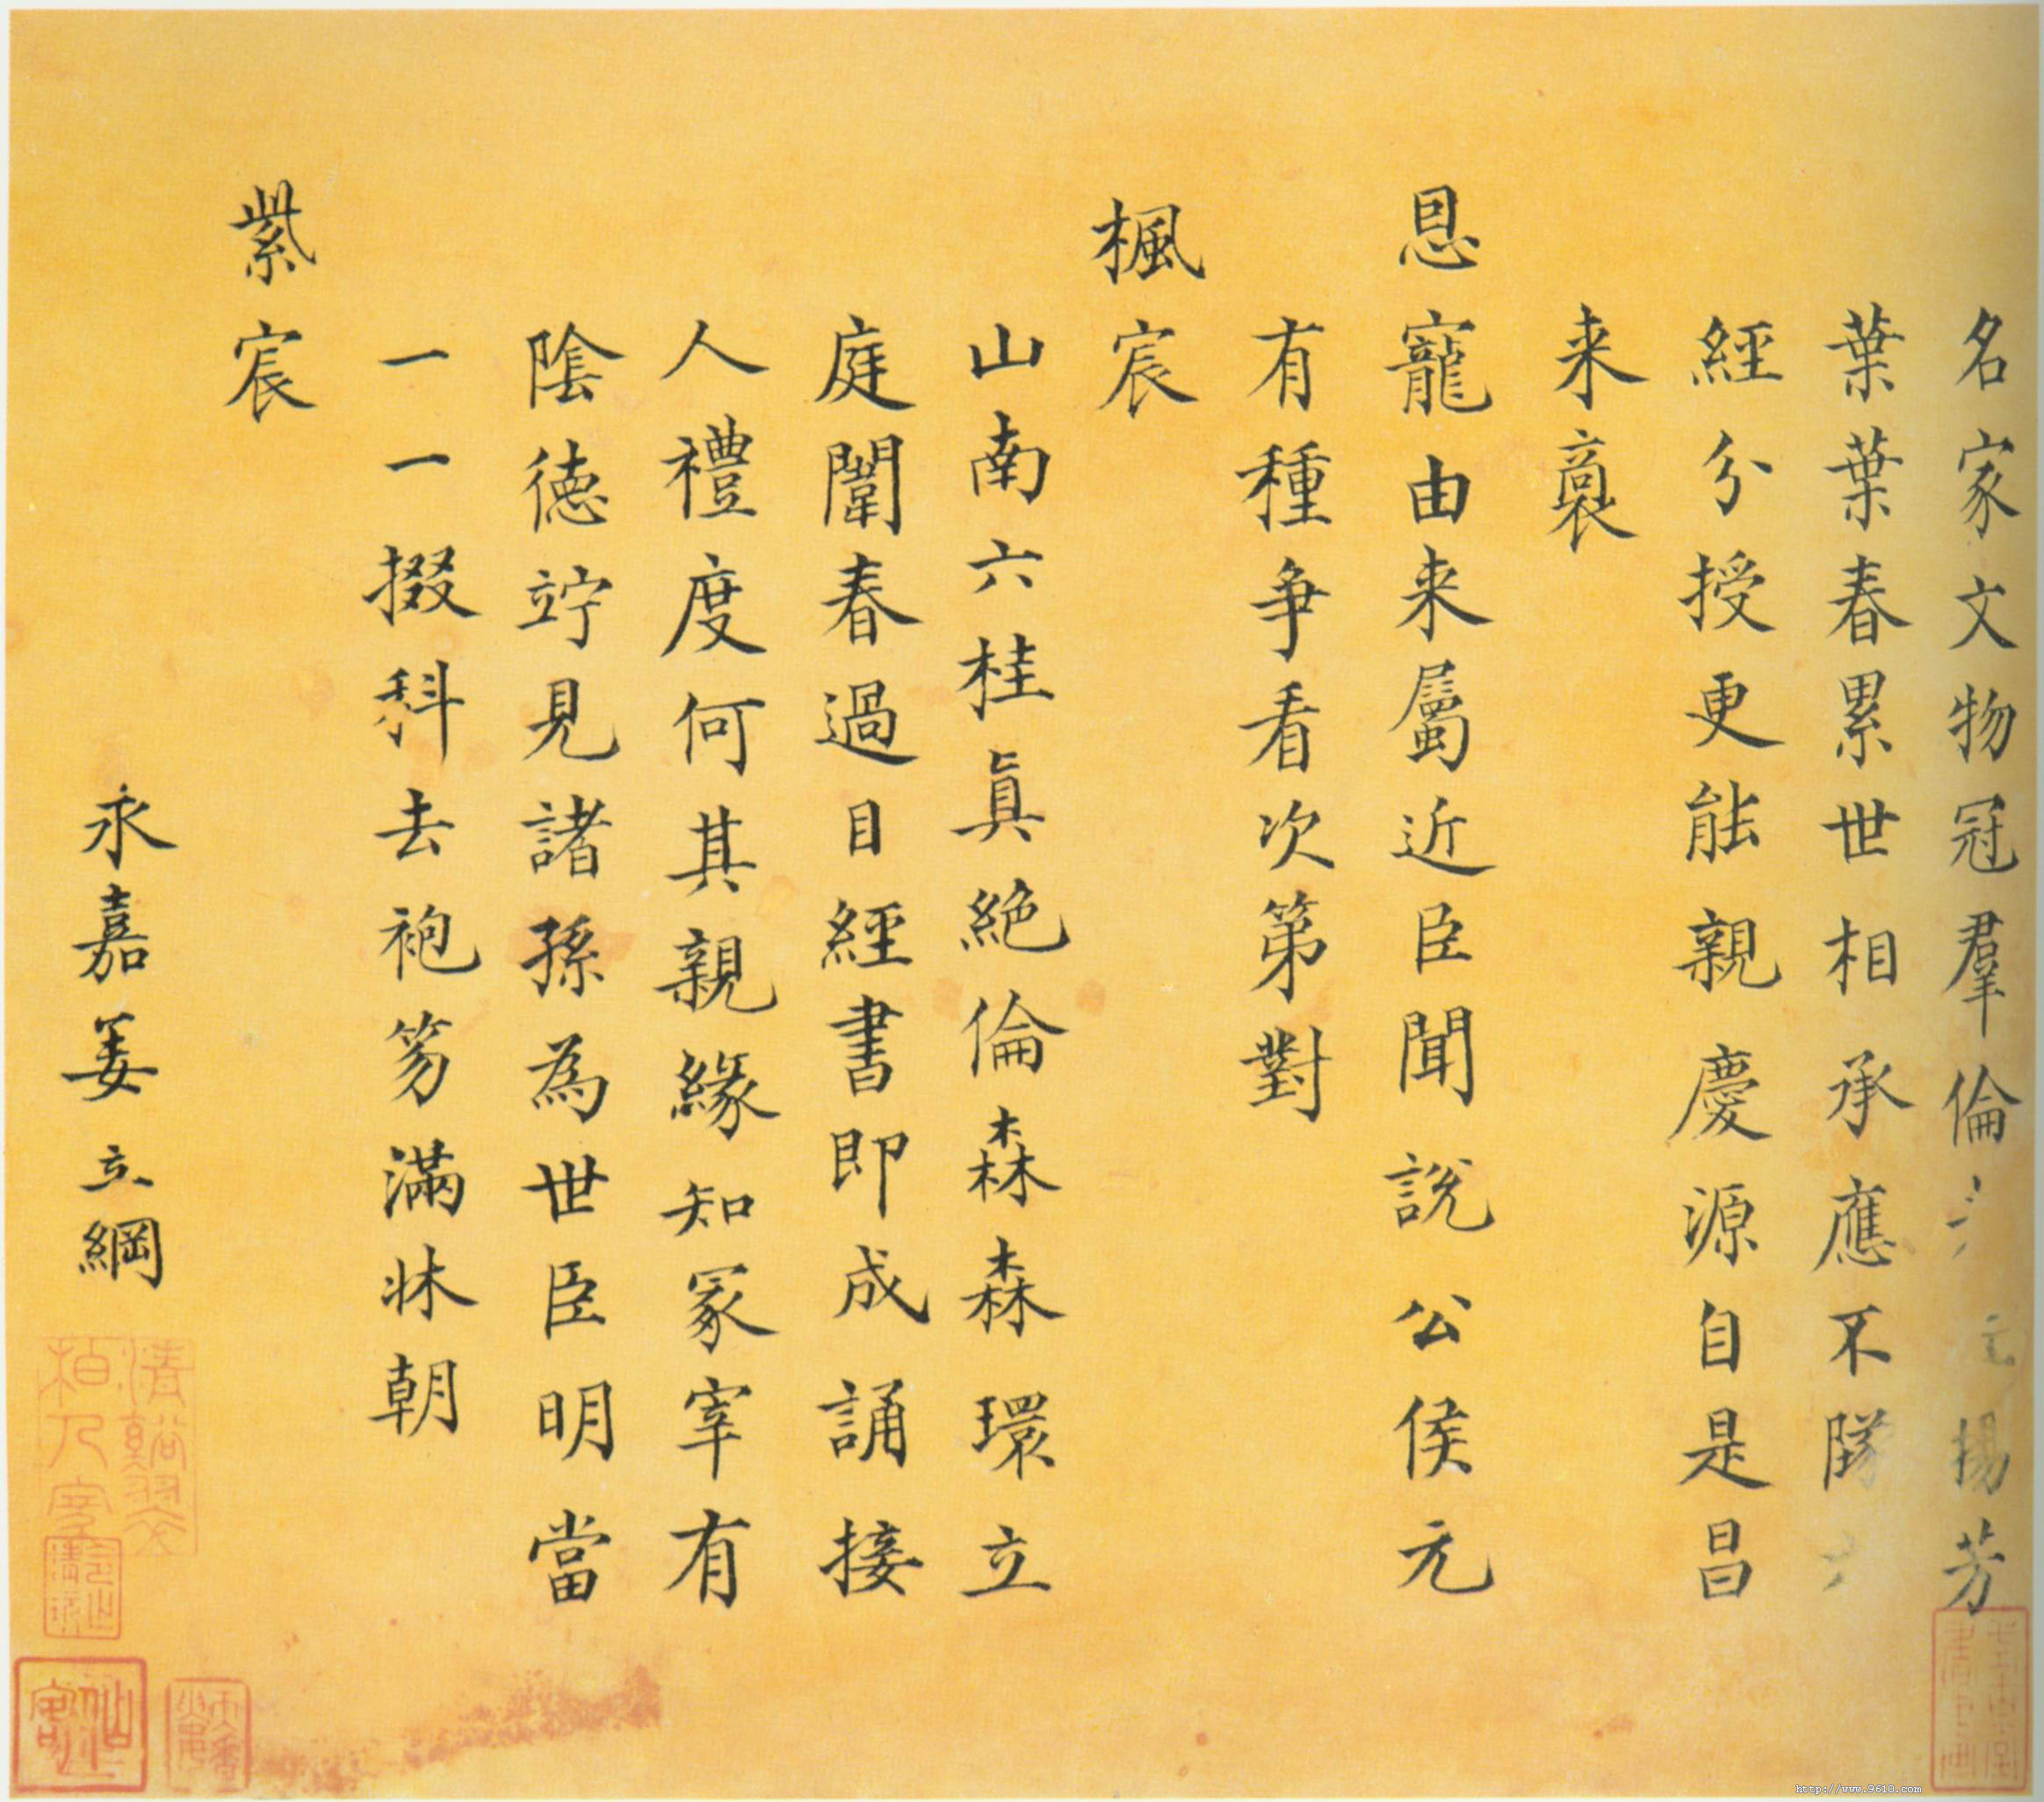 名家文物冠羣倫
揚芳
葉葉春累世相承應不隊
經分授更能親慶源自是昌
来裔
恩寵由来屬近臣聞說公侯元
有種争看次第對
楓宸
山南六桂真絕倫森森環立
庭闈春過目經書即成誦接
人禮度何其親緣知冢宰有
陰德竚見諸孫為世臣明當
一一掇科去袍笏滿牀朝
紫宸
永嘉姜立綱
http://www.9610.com